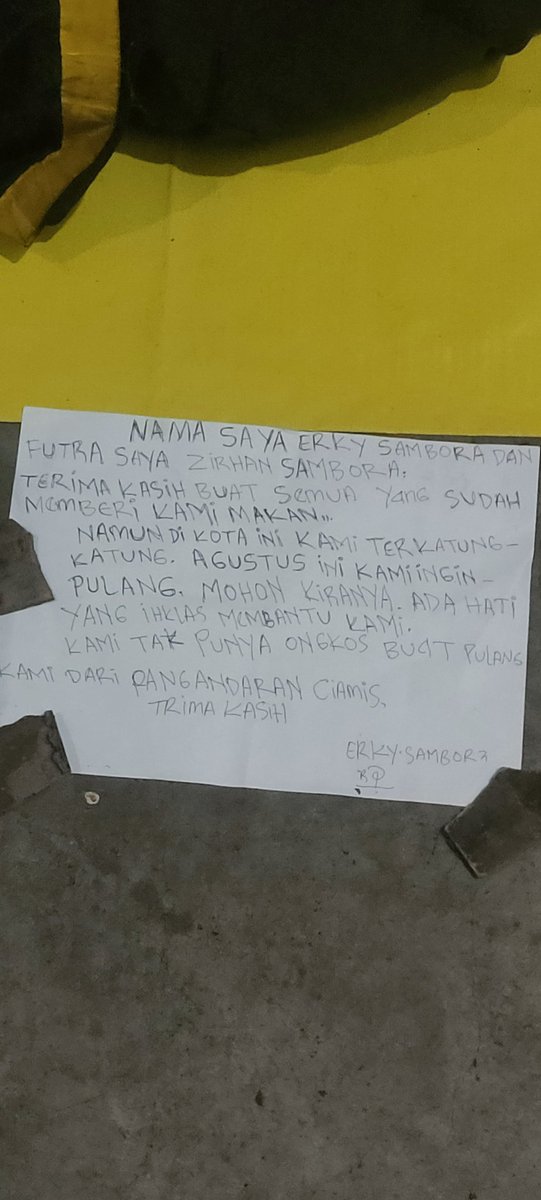 NAMA SAYA ERKY SAMBORA DAN
FUTRA SAYA ZIRHAN SAMBORA.
TERIMA KASIH BUAT SEMUA YANG SUDAH
MEMBERI KAMI MAKAN...
NAMUN DI KOTA INI KAMI TERKATUNG-
KATUNG. AGUSTUS INI KAMI INGIN-
PULANG. MOHON KIRANYA. ADA HATI
YANG IHKLAS MEMBANTU KAMI.
KAMI TAK PUNYA ONGKOS BUAT PULANG
KAMI DARI PANGANDARAN CIAMIS.
TRIMA KASIH
ERKY.SAMBORA